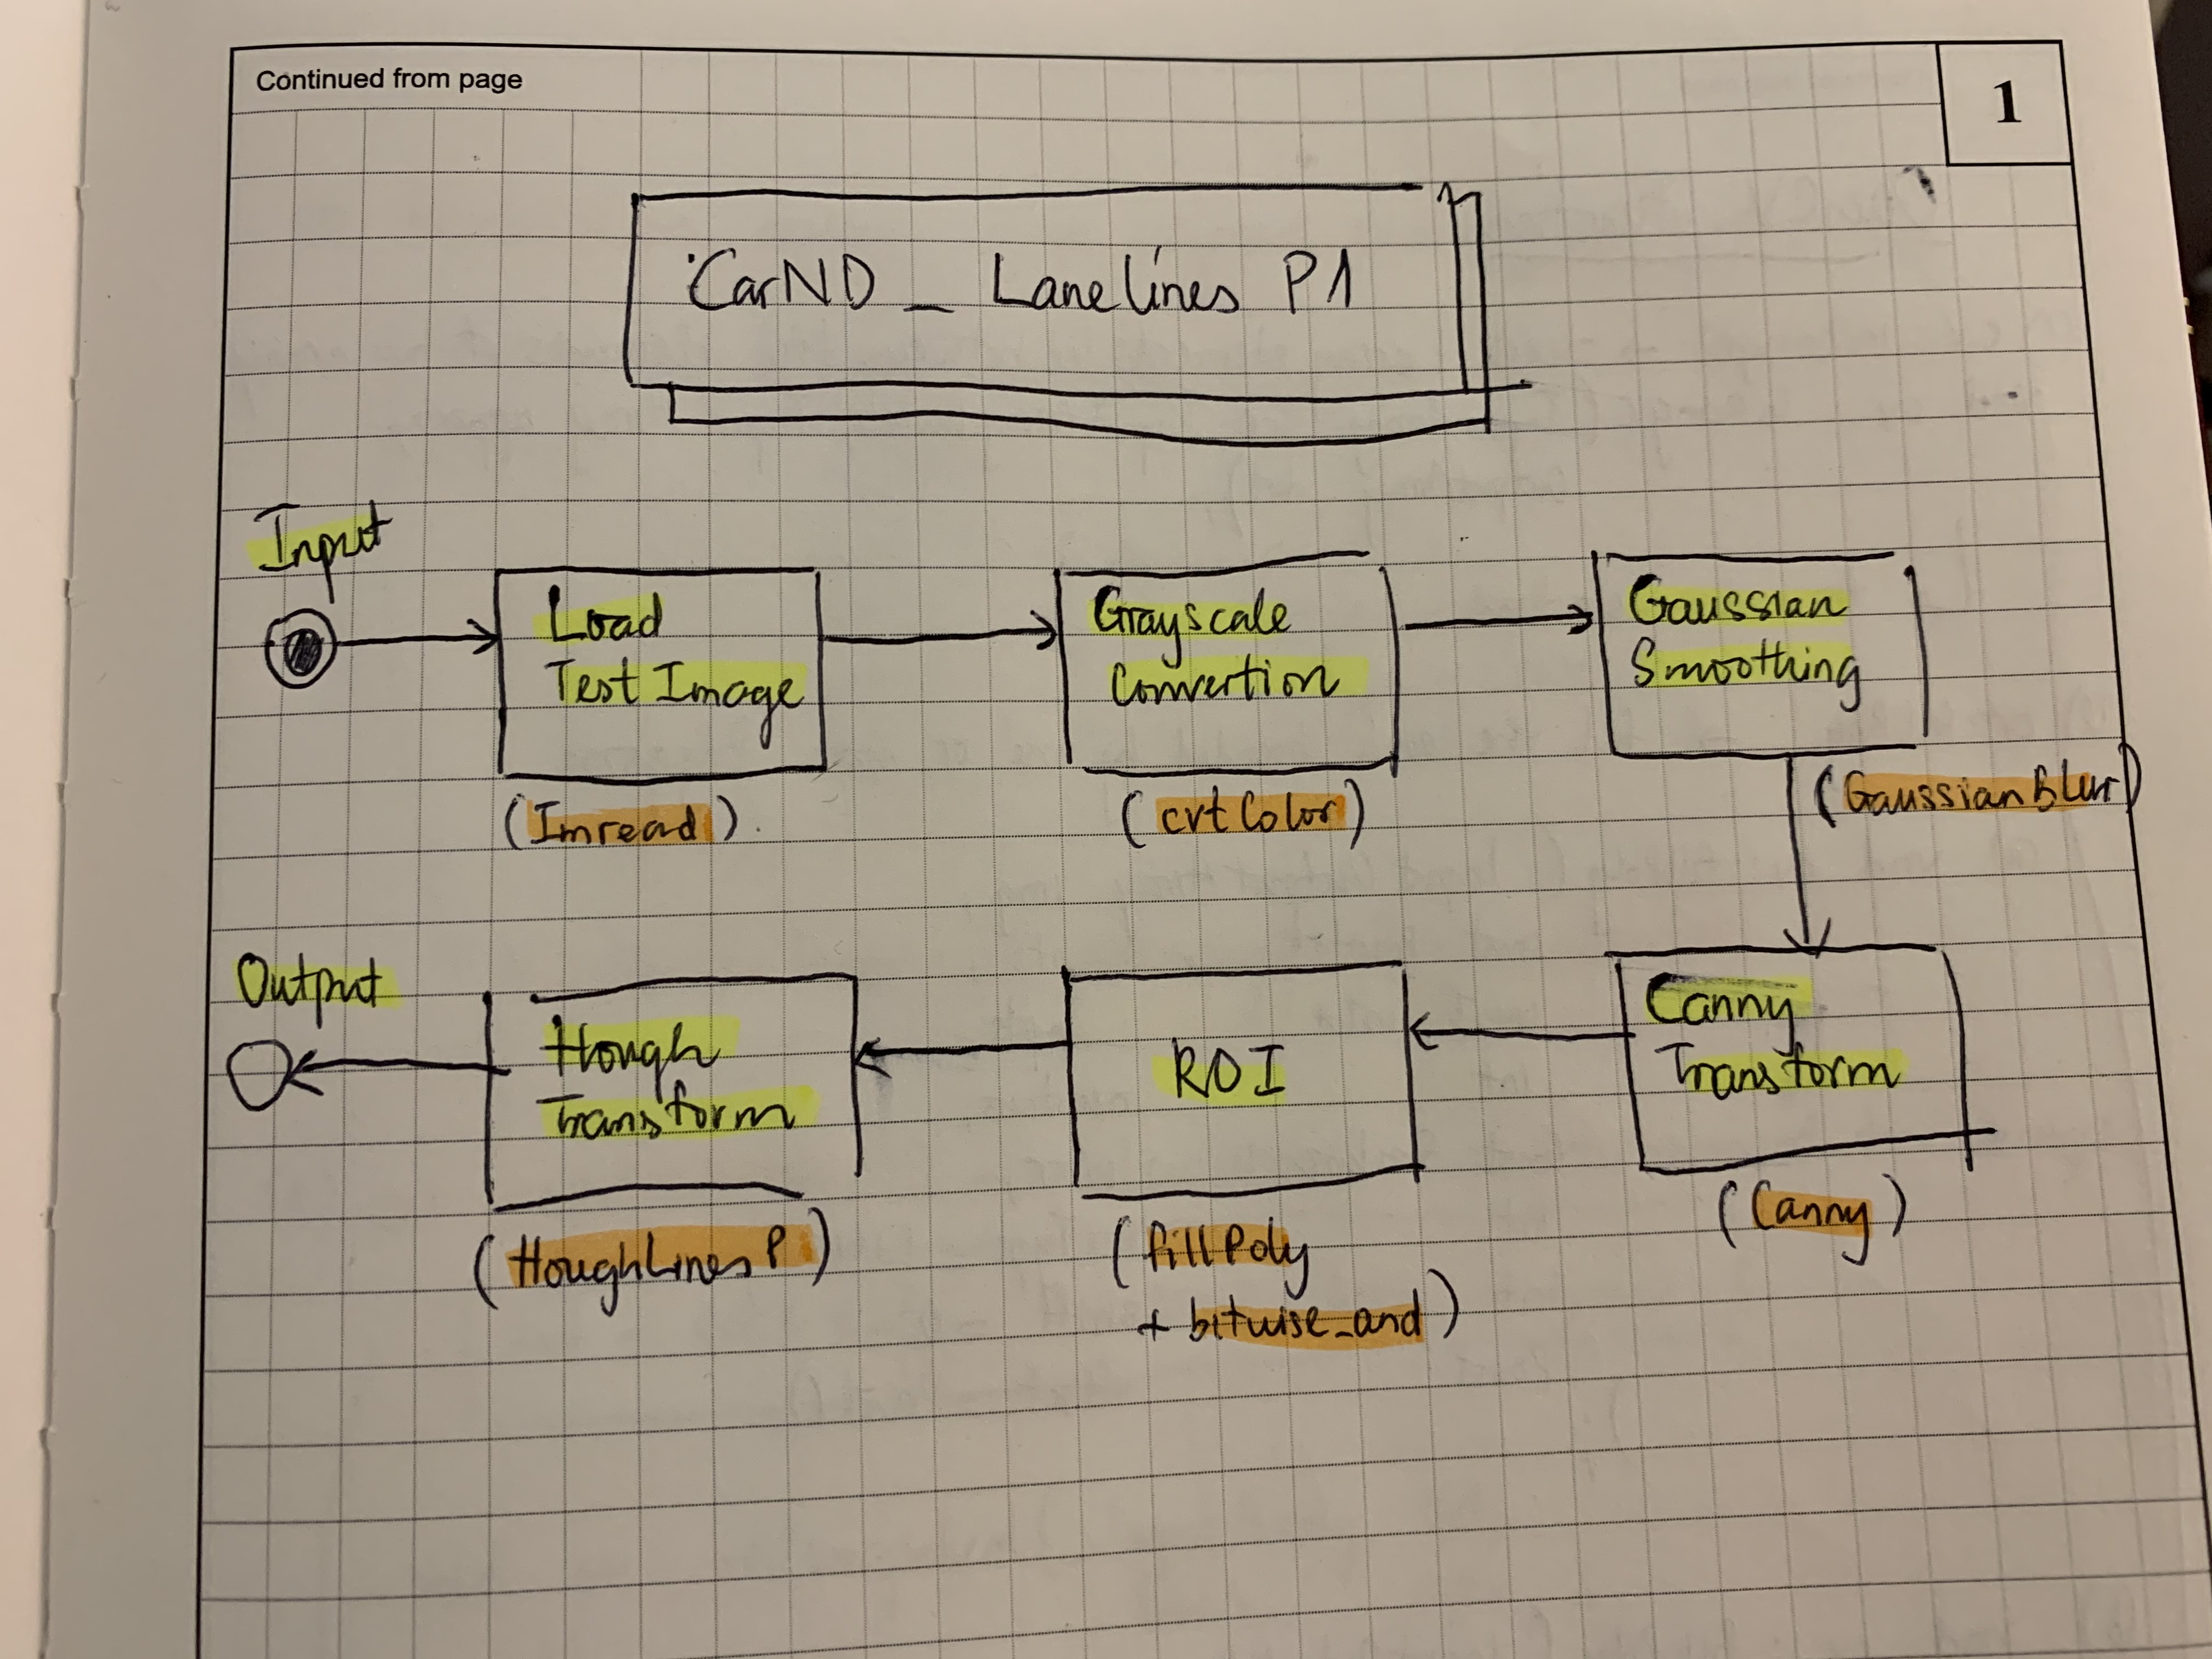 Continued from page
1
CarND _ Lanelines P1
Input
Load
Test Image
(Imread).
Grayscale
Convertion
(cvtColor)
Gaussian
Smoothing
(GaussianBlur)
Canny
Transform
(Canny)
ROI
(fillPoly
+ bitwise_and)
Hough
Transform
(HoughLinesP)
Output